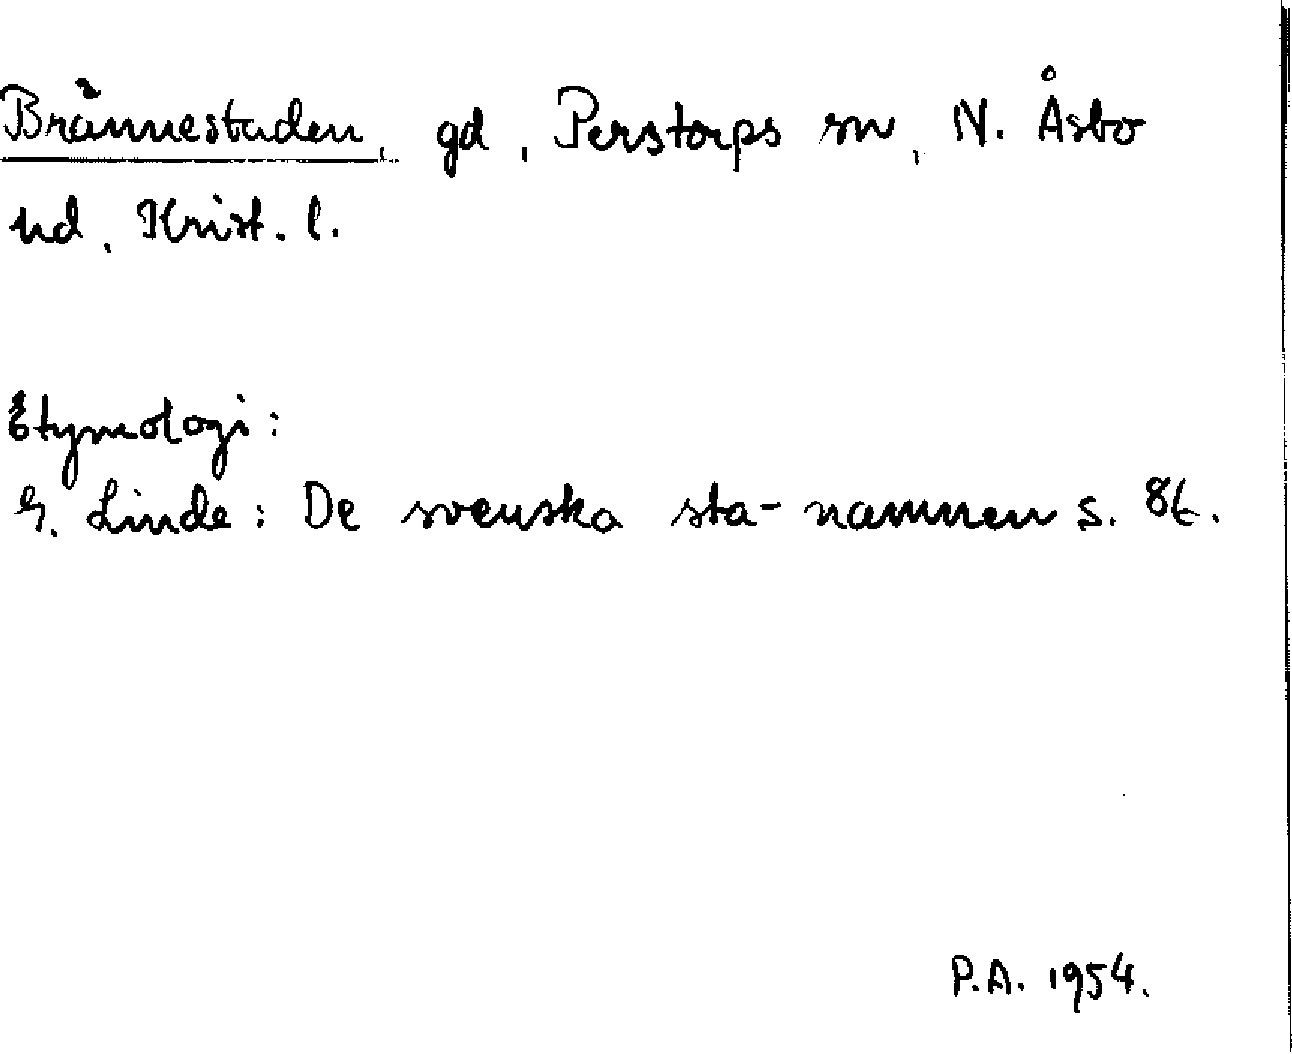 Brännestaden, gd, Perstorps sn, N. Åsbo
hd, Krist. l.
Etymologi:
G. Linde: De svenska sta-namnen s. 86.
P.A. 1954.